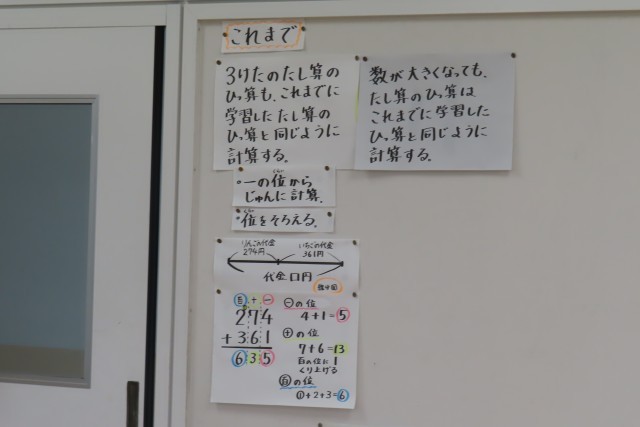 これまで
3けたのたし算の
ひっ算も、これまでに
学習したたし算の
ひっ算と同じように
計算する。
数が大きくなっても、
たし算のひっ算は
これまでに学習した
ひっ算と同じように
計算する。
・一の位から
じゅんに計算。
・位をそろえる。
りんごの代金
274円
いちごの代金
361円
代金□円
百 十 一
274
+361
635
一の位
4+1=5
十の位
7+6=13
百の位に1
くり上げる
百の位
①+2+3=6